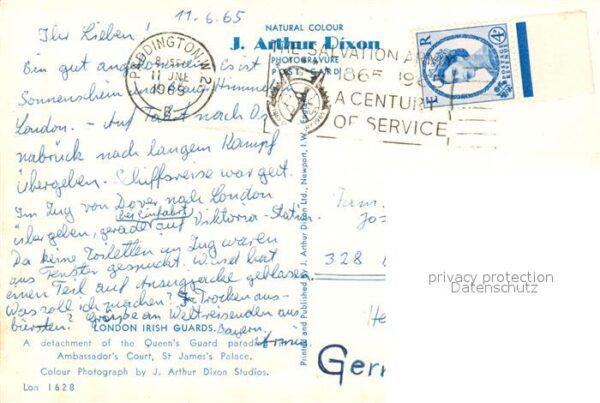 11.6.65
Ihr Lieben!
Bin gut angekommen. Es ist
Sonnenschein und blauer Himmel
London. – Auf Fahrt nach Os
nabrück nach langem Kampf
übergeben. Schiffsreise war gut.
Im Zug von Dover nach London
bei Einfahrt
übergeben, gerade auf Viktoria-Station.
Da keine Toiletten im Zug waren
aus Fenster gespuckt. Wind hat
einen Teil auf Anzugjacke geblasen.
Was soll ich machen? Trocken aus-
bürsten? Grüße an Weltreisenden aus
Bayern.
Armin
NATURAL COLOUR
J. Arthur Dixon
PHOTOGRAVURE
POST CARD
PADDINGTON W.2
11 JNE
1965
B
THE SALVATION A
1865 19
A CENTURY
OF SERVICE
E R
4D
POSTAGE
REVENUE
Printed and Published by J. Arthur Dixon Ltd., Newport, I.W., England
Fam.
328
He
Gerr
privacy protection
Datenschutz
LONDON IRISH GUARDS.
A detachment of the Queen's Guard parading
Ambassador's Court, St James's Palace.
Colour Photograph by J. Arthur Dixon Studios.
Lon 1628